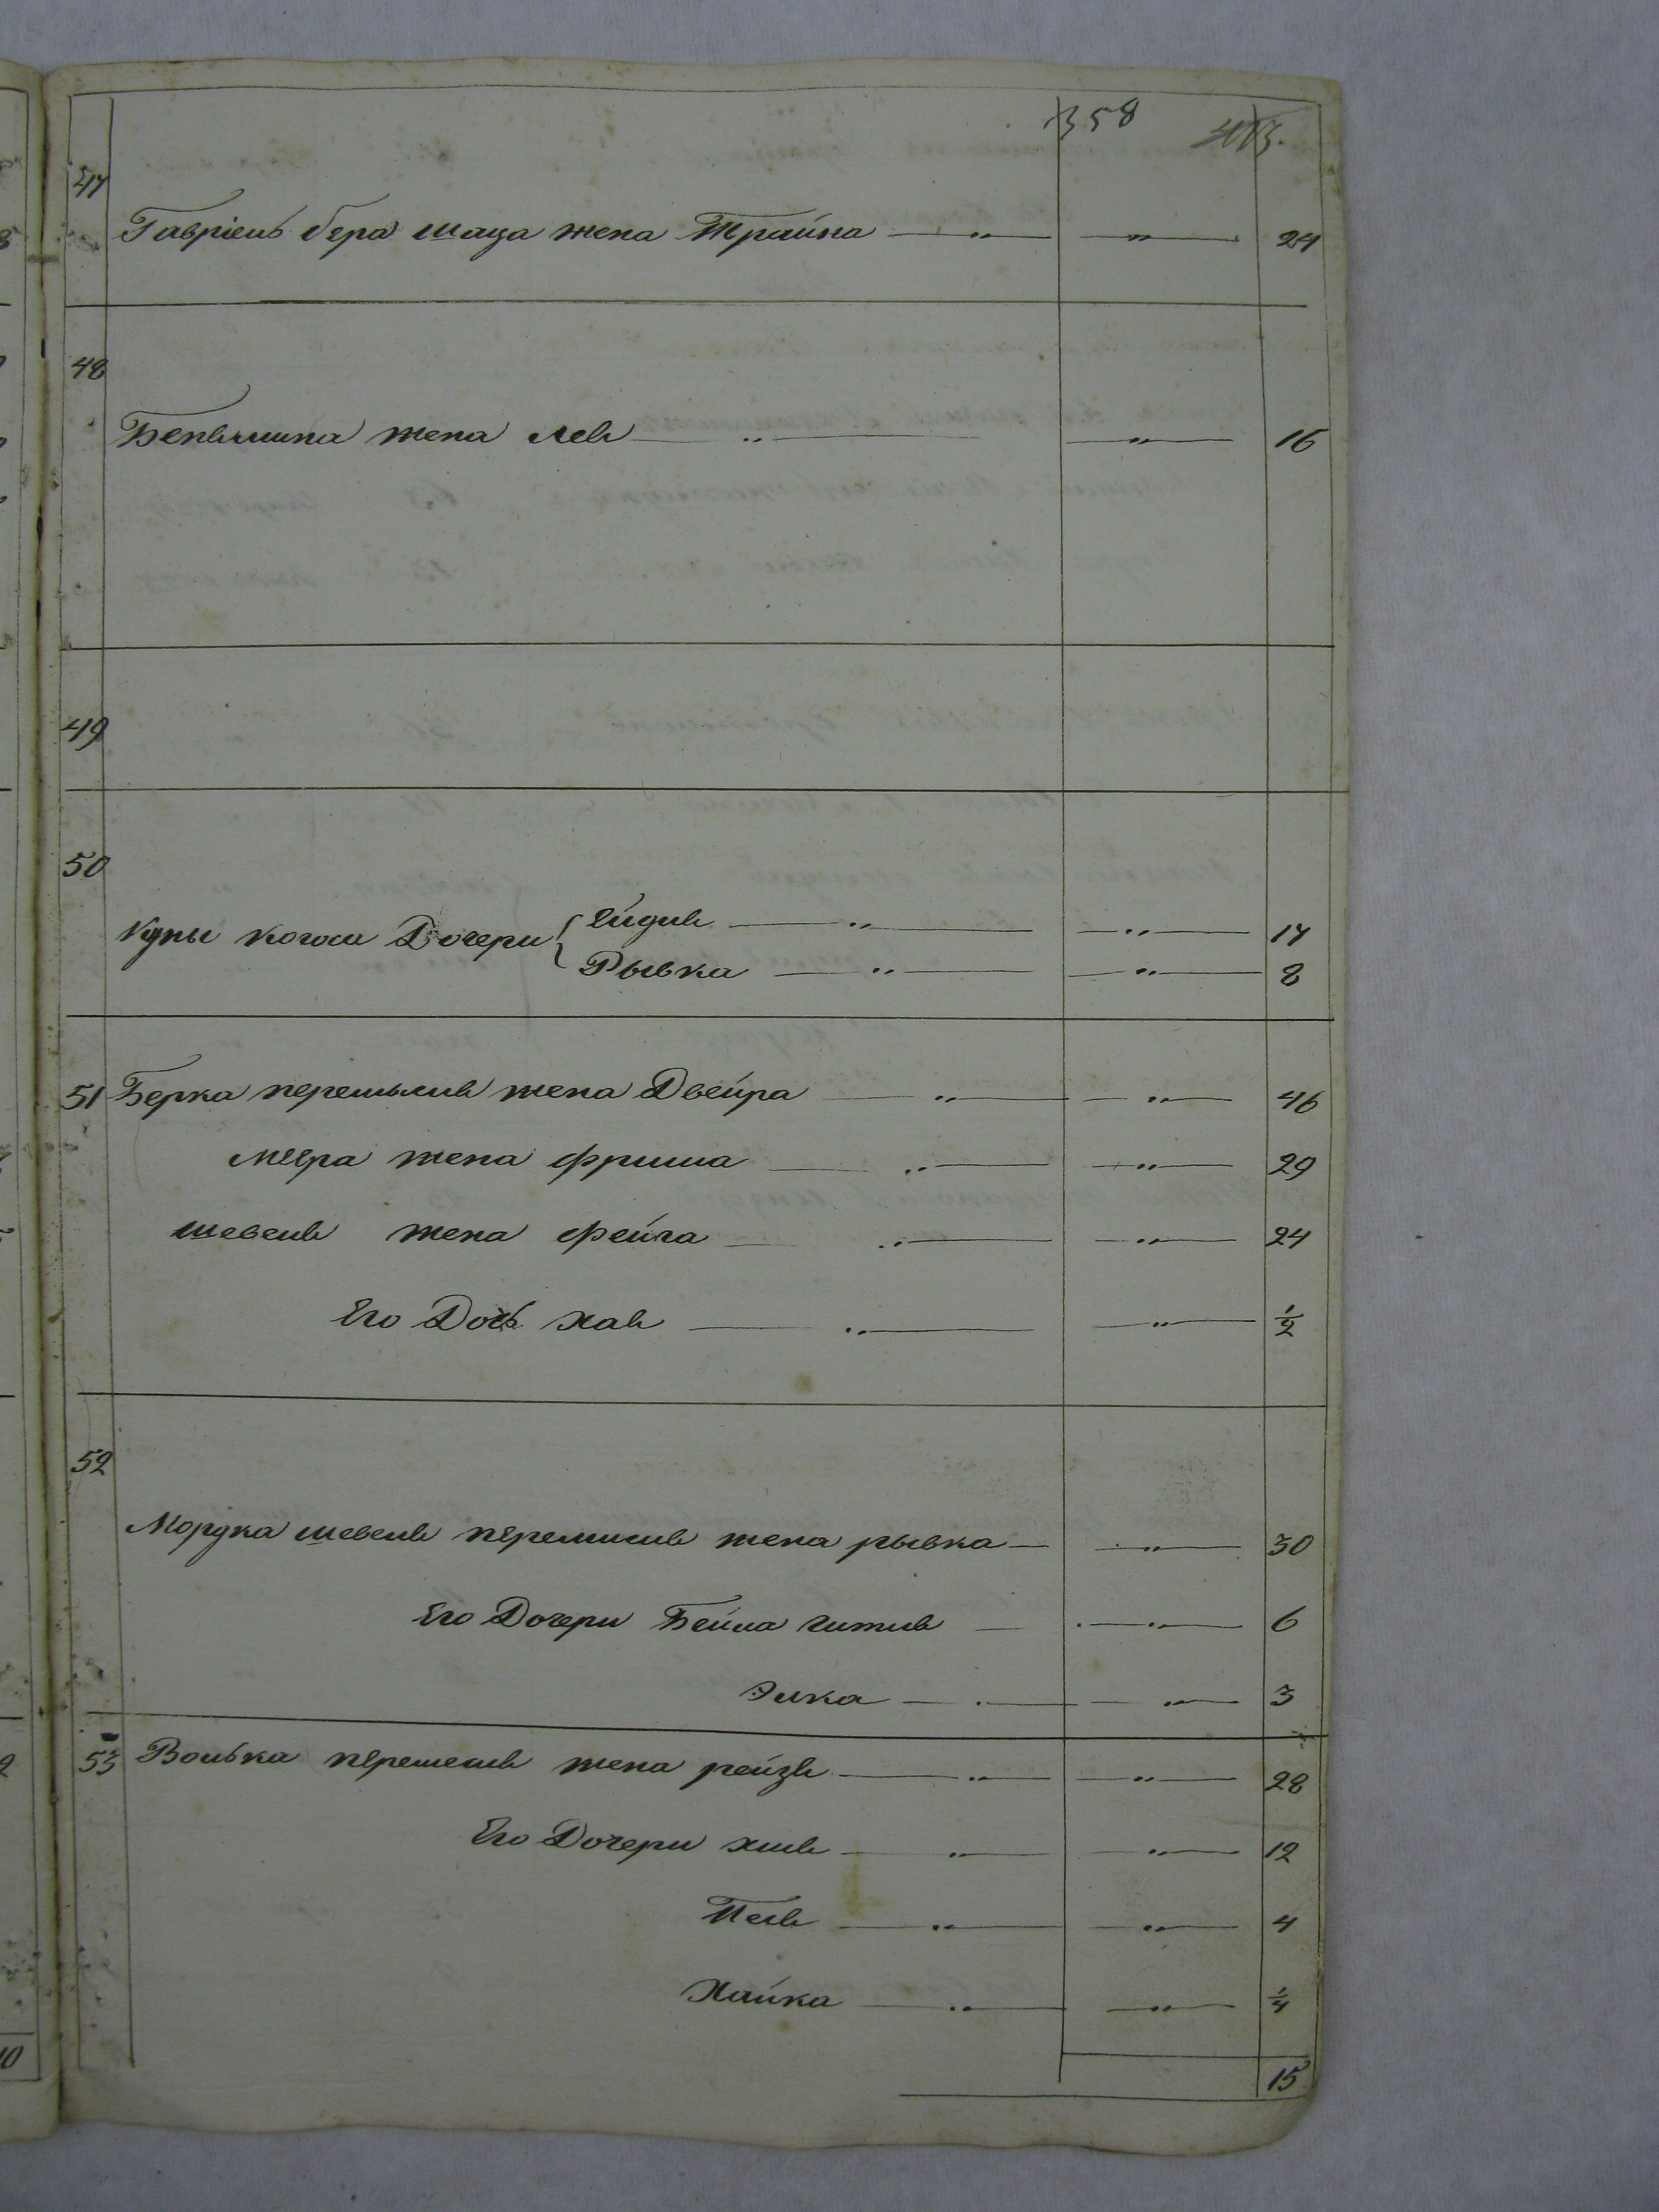 358
47
Гавріель бера шаца жена Трайна — „ — — „ — 24
48
Беньямина жена Леѣ — „ — — „ — 16
49
50
Куны когоса Дочери { Ейдлѣ — „ — — „ — 17
Рывка — „ — — „ — 8
51 Берка перешълѣ жена Двейра — „ — — „ — 46
меера жена фрима — „ — — „ — 29
шевелѣ жена фейга — „ — — „ — 24
Его Дочь хаѣ — „ — — „ — ½
52
Мордка шевелѣ перешилѣ жена рывка — — „ — 30
Его Дочери Бейла гитлѣ — — „ — 6
Элка — „ — — „ — 3
53 Волька перешелѣ жена рейзѣ — „ — — „ — 28
Его Дочери — „ — — „ — 12
Песѣ — „ — — „ — 4
Хайка — „ — — „ — ¼
15